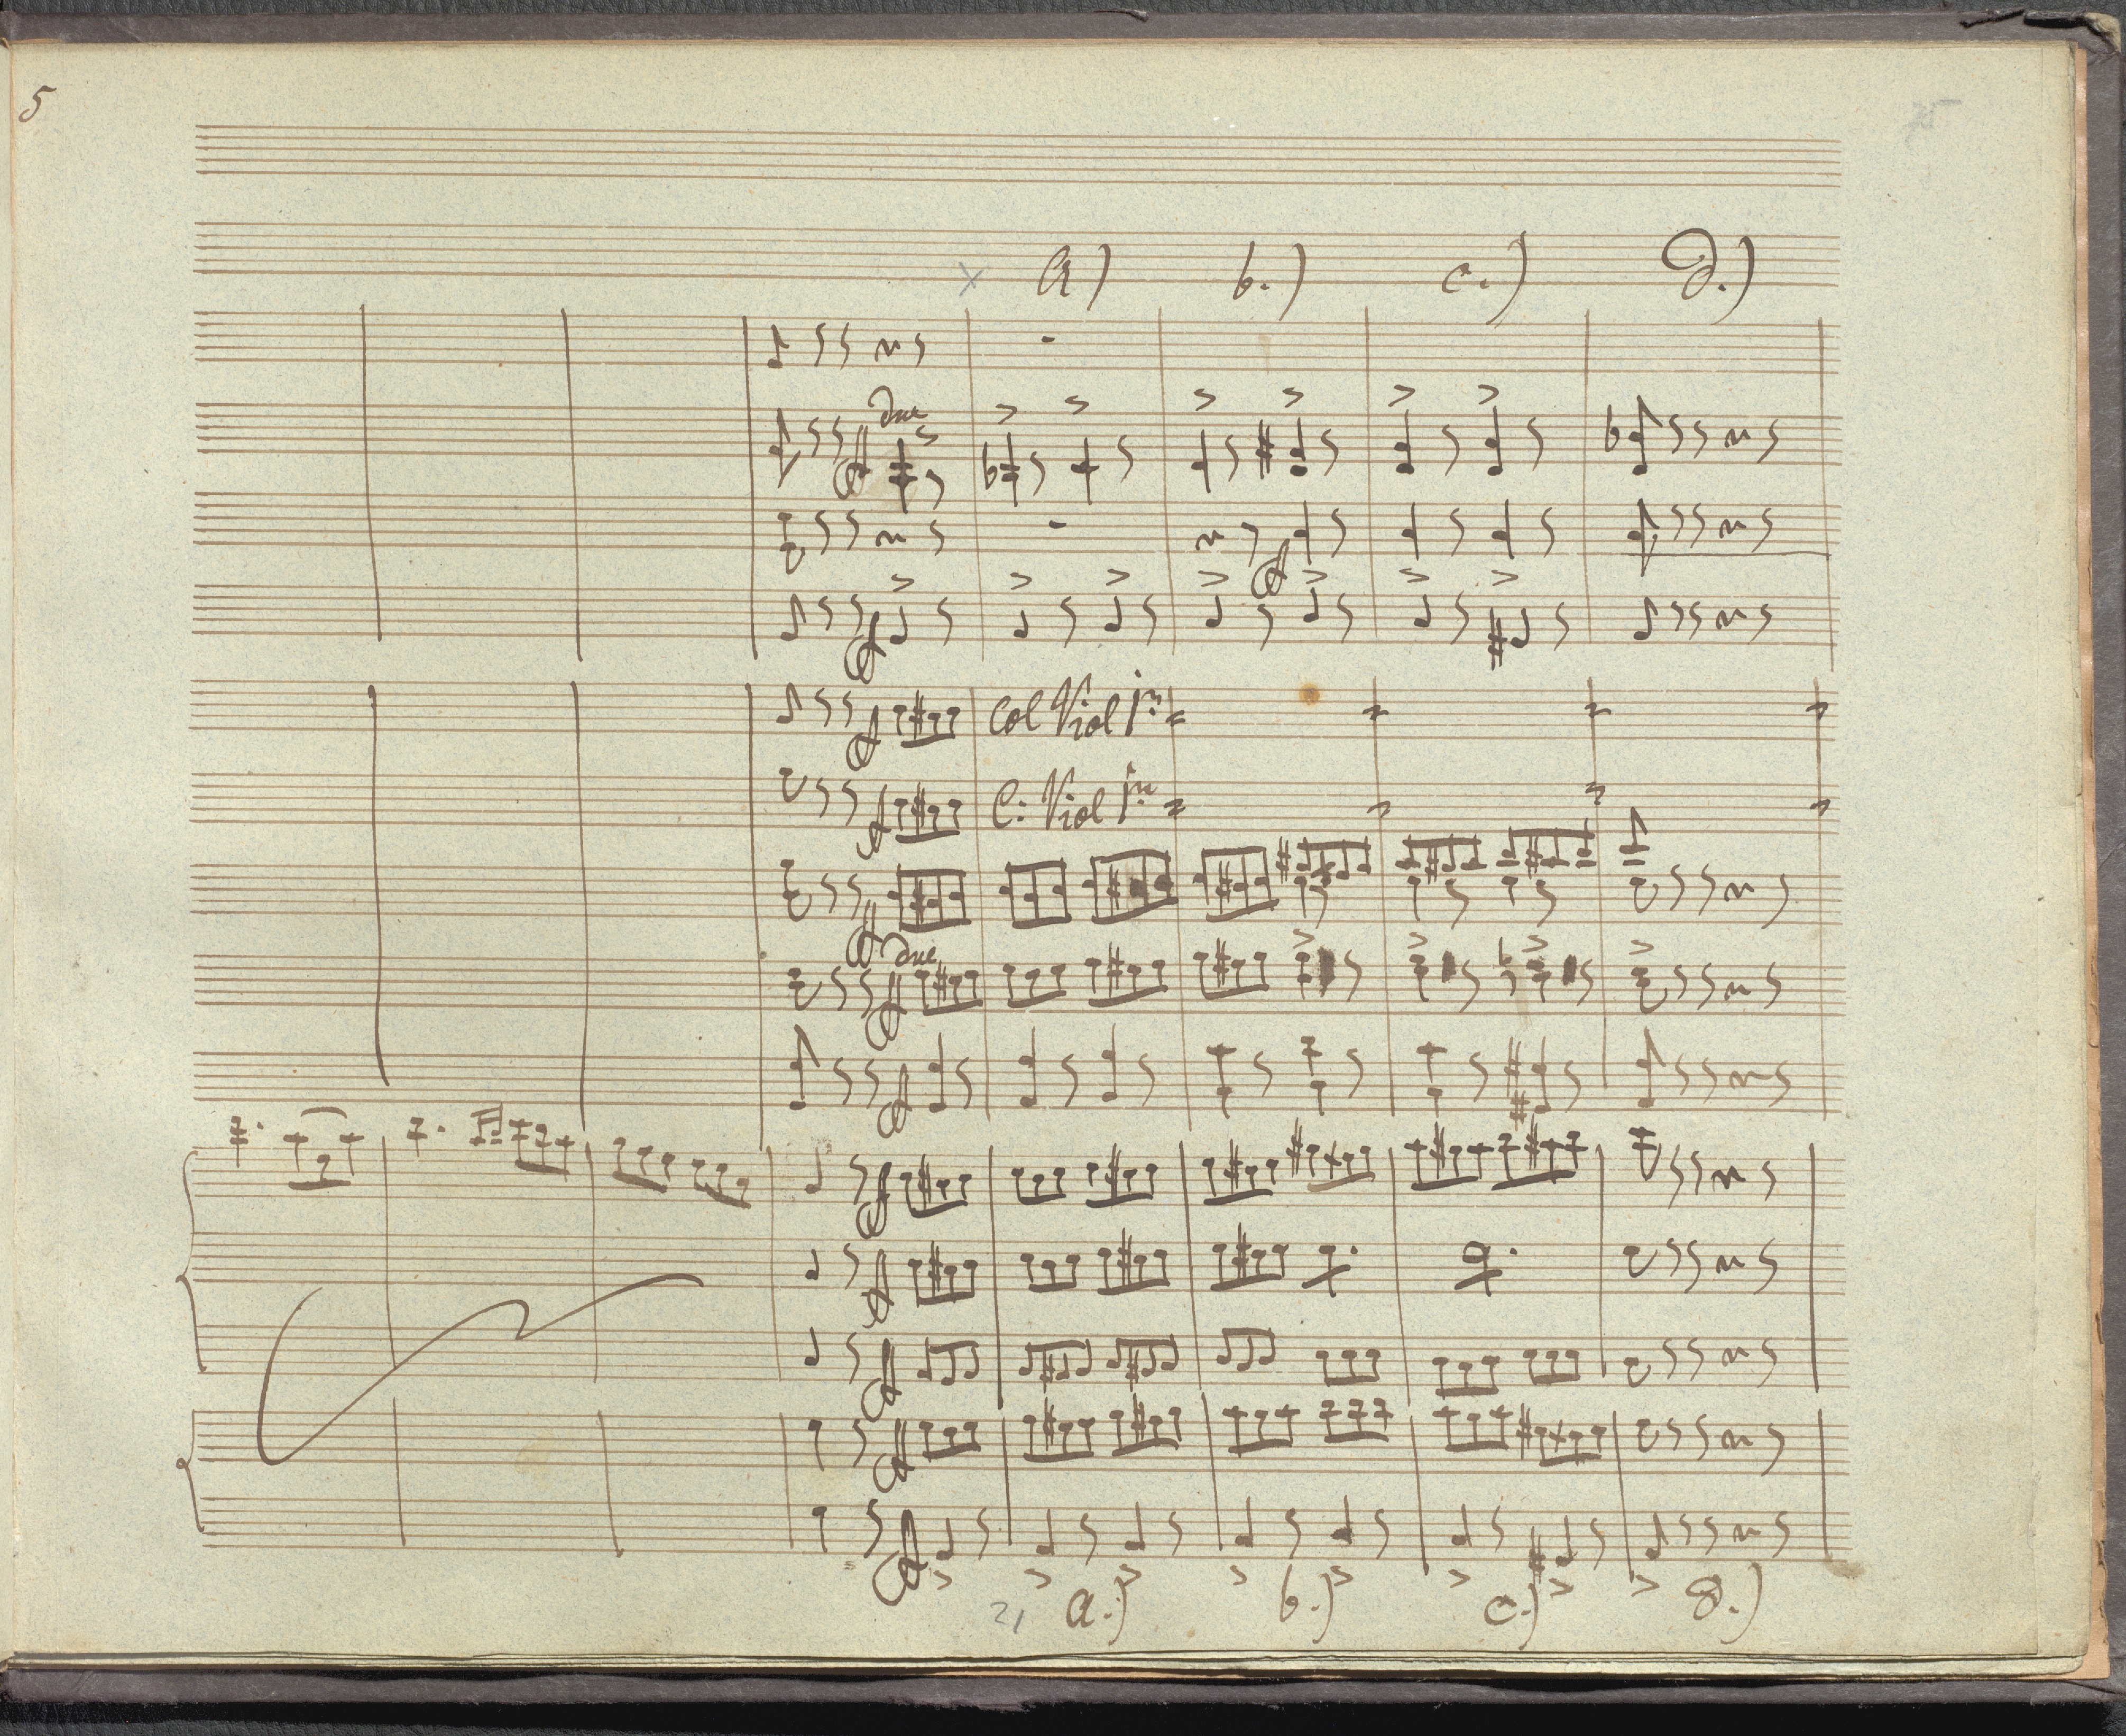 5
a) b.) c.) d.)
due
Col Viol 1mo
C: Viol 1mo
due
21 a.) b.) c.) d.)